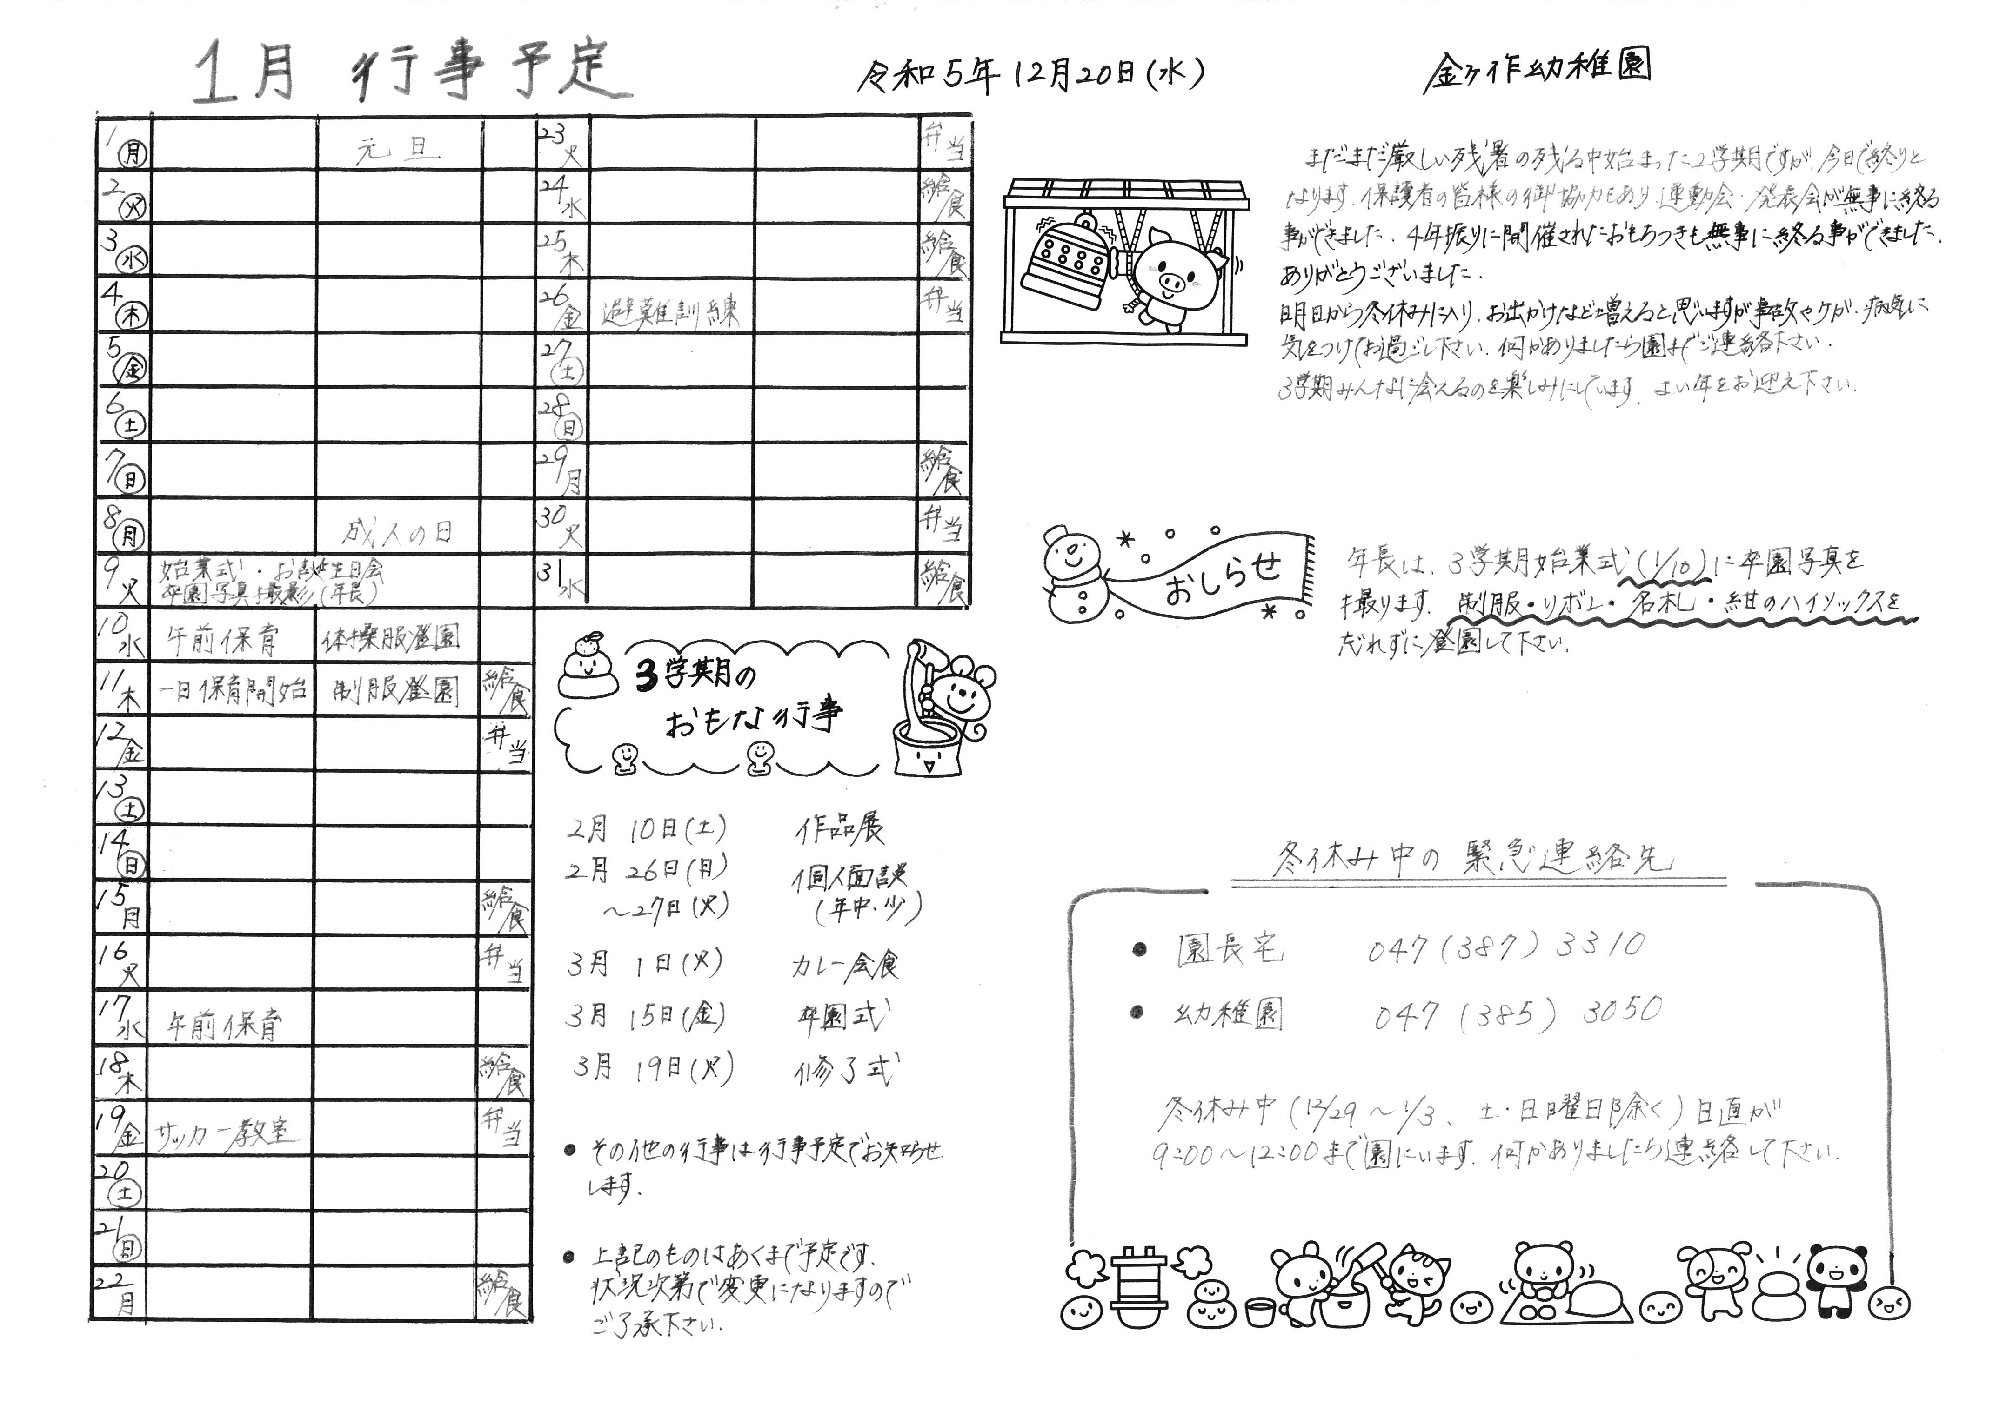 1月 行事予定
令和5年12月20日(水)
金ヶ作幼稚園
1 月 元旦
2 火
3 水
4 木
5 金
6 土
7 日
8 月 成人の日
9 火 始業式・お誕生日会
卒園写真撮影(年長)
10 水 午前保育 体操服登園
11 木 一日保育開始 制服登園 給食
12 金 弁当
13 土
14 日
15 月 給食
16 火 弁当
17 水 午前保育
18 木 給食
19 金 サッカー教室 弁当
20 土
21 日
22 月 給食
23 火 弁当
24 水 給食
25 木 給食
26 金 避難訓練 弁当
27 土
28 日
29 月 給食
30 火 弁当
31 水 給食
3学期の
おもな行事
2月 10日(土) 作品展
2月 26日(月) 個人面談
～27日(火) (年中・少)
3月 1日(火) カレー会食
3月 15日(金) 卒園式
3月 19日(火) 修了式
● その他の行事は行事予定でお知らせ
します.
● 上記のものはあくまで予定です.
状況次第で変更になりますので
ご了承下さい.
まだまだ厳しい残暑の残る中始まった2学期ですが、今日で終りと
なります. 保護者の皆様の御協力もあり 運動会・発表会が無事に終る
事ができました. 4年振りに開催されたおもちつきも無事に終る事ができました.
ありがとうございました.
明日から冬休みに入り、お出かけなど増えると思いますが事故やケガ・病気に
気をつけてお過ごし下さい. 何かありましたら園までご連絡下さい.
3学期みんなに会えるのを楽しみにしています. よい年をお迎え下さい.
おしらせ
年長は、3学期始業式(1/10)に卒園写真を
撮ります. 制服・リボン・名札・紺のハイソックスを
忘れずに登園して下さい.
冬休み中の緊急連絡先
● 園長宅 047(387)3310
● 幼稚園 047(385)3050
冬休み中(12/29～1/3、土・日曜日除く)日直が
9:00～12:00まで園にいます. 何かありましたら連絡して下さい.